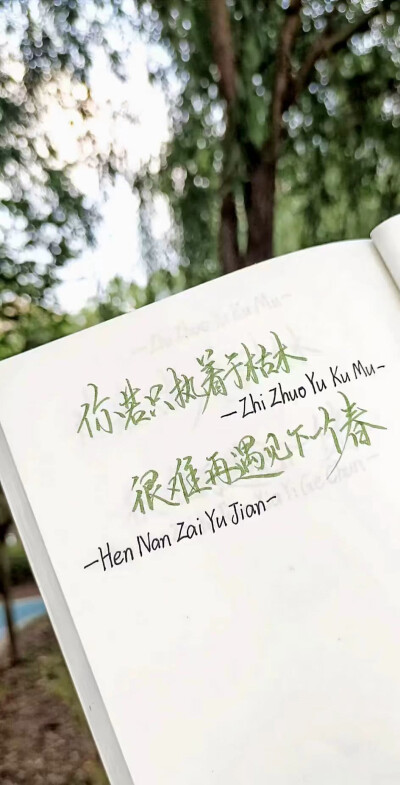 你若只执着于枯木
-Zhi Zhuo Yu Ku Mu-
很难再遇见下一个春
-Hen Nan Zai Yu Jian-